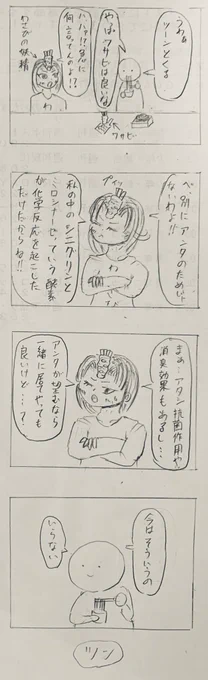 うわぁ
ツーンとくる
やっぱワサビは良いな
ハハァ!?急に
何言ってんのよ!?
わさびの妖精
わ
ワサビー
べ、別にアンタのためじゃ
ないわよ!!
プイッ
私の中のシニグリンと
ミロシナーゼっていう酵素
が化学反応を起こした
だけだからね!!
わ
まぁ…アタシ抗菌作用や
消臭効果もあるし…
アンタが望むなら
一緒に居てやっても
良いけど…?
今はそういうの
いらない
ツン